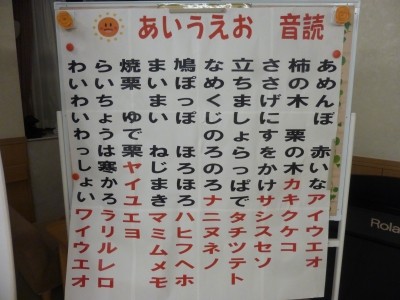 あいうえお　音読
あめんぼ　赤いなアイウエオ
柿の木　栗の木カキクケコ
ささげにすをかけサシスセソ
立ちましょらっぱでタチツテト
なめくじのろのろナニヌネノ
鳩ぽっぽ　ほろほろハヒフヘホ
まいまい　ねじまきマミムメモ
焼栗　ゆで栗ヤイユエヨ
らいちょうは寒かろラリルレロ
わいわいわっしょいワイウエオ
Rola